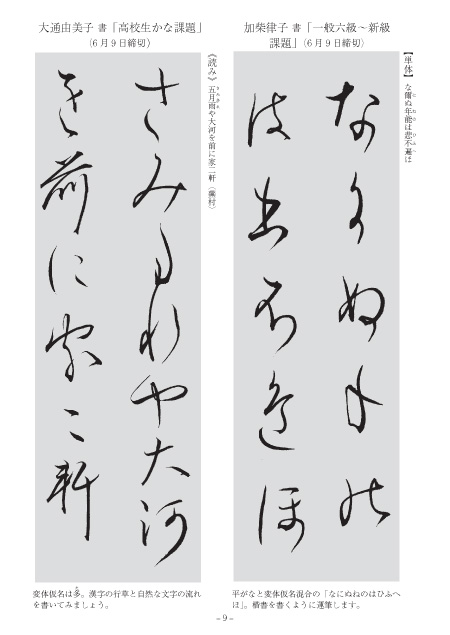 加柴律子 書「一般六級～新級
課題」（6月9日締切）
【単体】な爾ぬ年能は悲不遍ほ
な爾ぬ年能
は悲不遍ほ
平がなと変体仮名混合の「なにぬねのはひふへ
ほ」。楷書を書くように運筆します。
大通由美子 書「高校生かな課題」
（6月9日締切）
《読み》五月雨や大河を前に家二軒（蕪村）
さみ多れや大河
を前に家二軒
変体仮名は多。漢字の行草と自然な文字の流れ
を書いてみましょう。
－9－